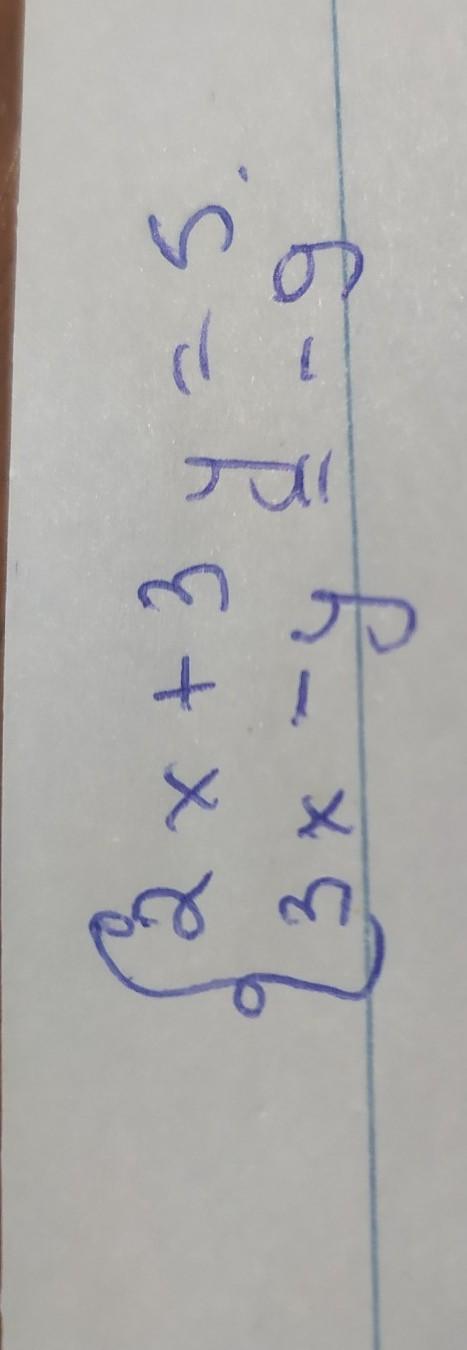 2x + 3y = 5.
3x - y = - 9